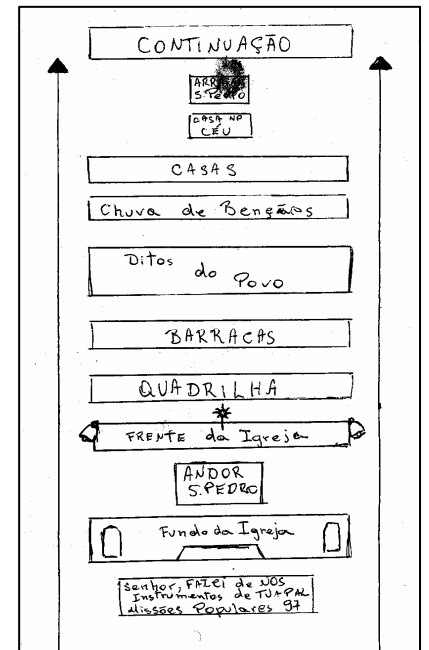 CONTINUAÇÃO
S. Pedro
CASA NO
CÉU
CASAS
Chuva de Bençãos
Ditos
do
Povo
BARRACAS
QUADRILHA
FRENTE da Igreja
ANDOR
S. PEDRO
Fundo da Igreja
Senhor, FAZEI de NÓS
Instrumentos de TUA PAZ
Missões Populares 97